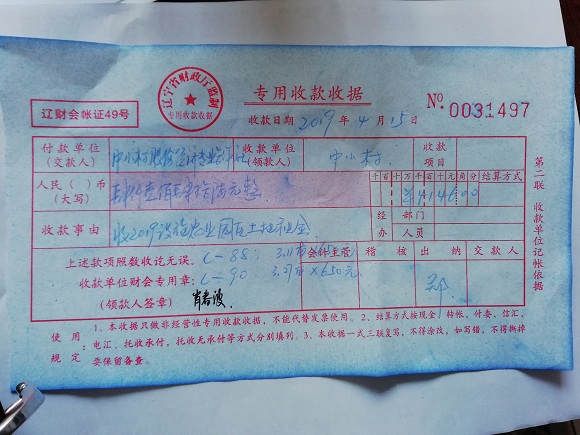 辽宁省财政厅监制
专用收款收据
专用收款收据
辽财会帐证49号
收款日期 2019年4月15日
No. 0031497
付款单位
(交款人)
收款单位
(领款人)
中小村
收款
项目
人民( )币
(大写)
千百十万千百十元角分
结算方式
收款事由
收2019设施农业园区土地租金
经办
部门
人员
上述款项照数收讫无误。
L-88:
会计主管
稽核
出纳
交款人
收款单位财会专用章:
L-90
×650元
(领款人签章)
郑
第二联 收款单位记帐依据
使用规定
:1、本收据只做非经营性专用收款收据,不能代替发票使用。2、结算方式按现金、转帐、付委、信汇、
电汇、托收承付,托收无承付等方式分别填列。3、本收据一式三联复写,不得涂改,如写错,不得撕掉
要保留备查。